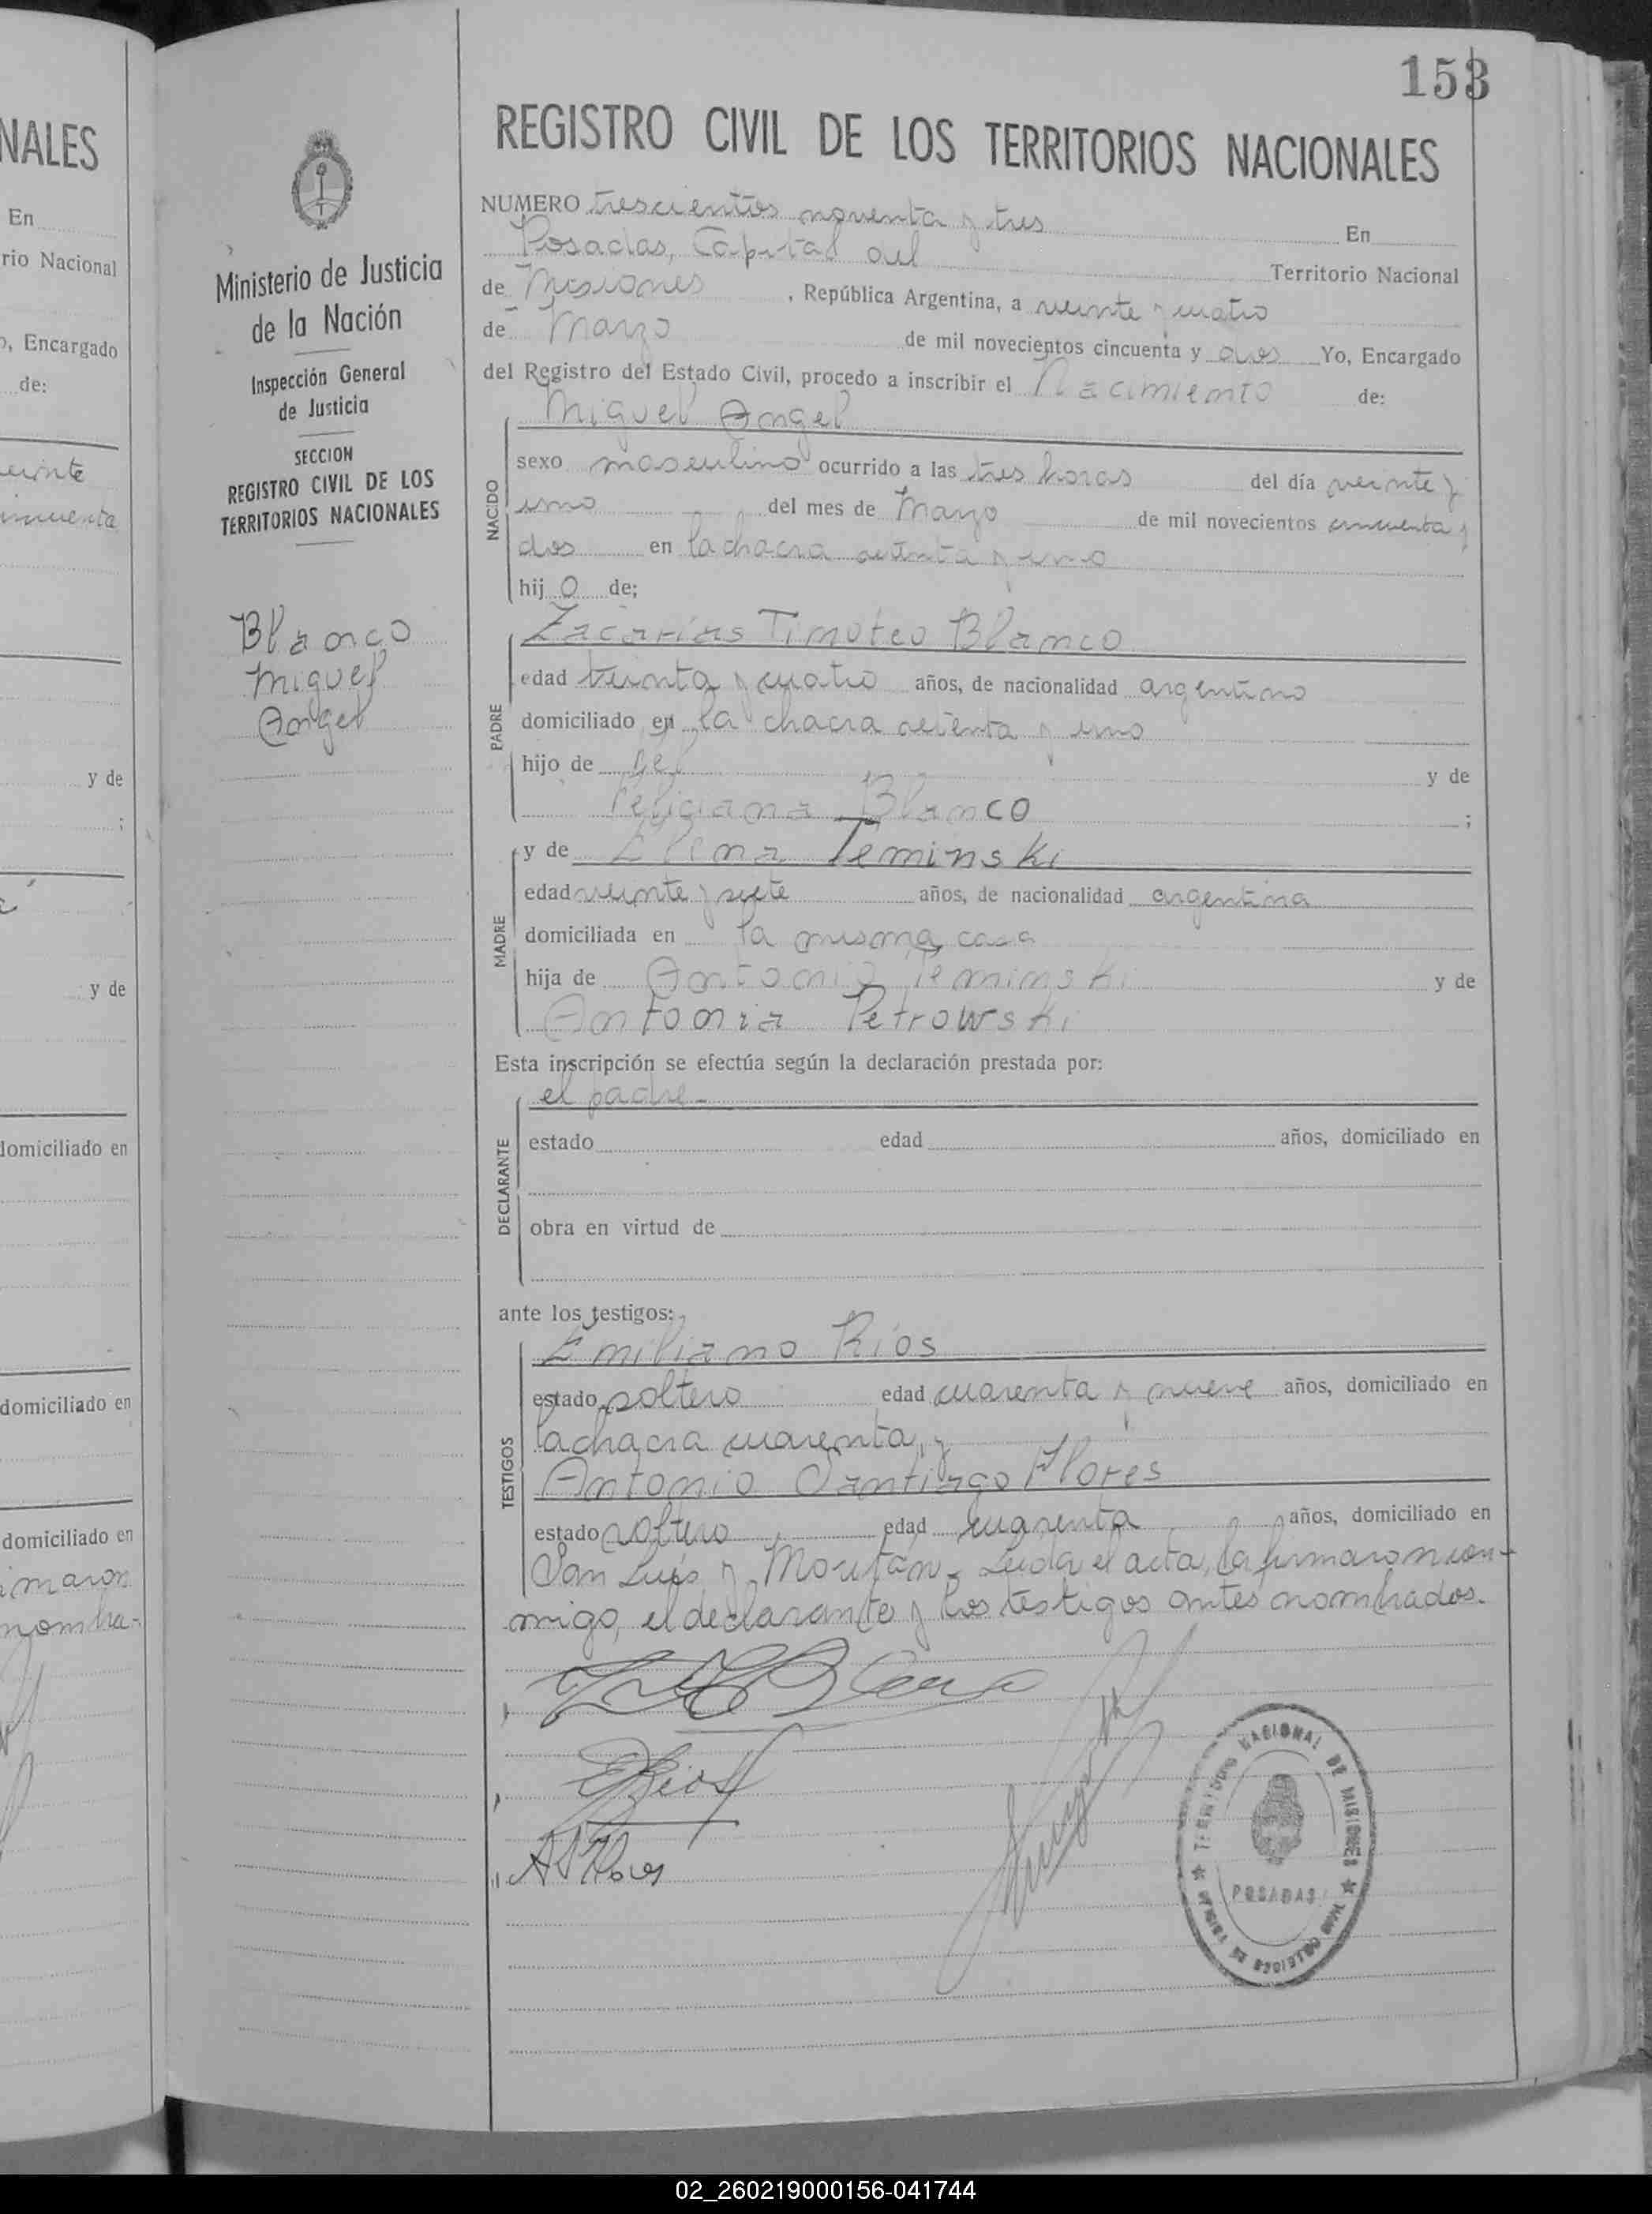 NALES
En
rio Nacional
o, Encargado
de:
veinte
incuenta
y de
;
y de
domiciliado en
domiciliado en
domiciliado en
imaron
nombra-
Ministerio de Justicia
de la Nación
Inspección General
de Justicia
SECCION
REGISTRO CIVIL DE LOS
TERRITORIOS NACIONALES
Blanco
Miguel
Angel
153
REGISTRO CIVIL DE LOS TERRITORIOS NACIONALES
NUMERO trescientos noventa y tres En
Posadas, Capital del Territorio Nacional
de Misiones, República Argentina, a veinte y cuatro
de Marzo de mil novecientos cincuenta y dos Yo, Encargado
del Registro del Estado Civil, procedo a inscribir el Nacimiento de:
Miguel Angel
NACIDO
sexo masculino ocurrido a las tres horas del día veinte y
uno del mes de Marzo de mil novecientos cincuenta y
dos en la chacra setenta y uno
hijo de;
Zacarías Timoteo Blanco
PADRE
edad treinta y cuatro años, de nacionalidad argentino
domiciliado en la chacra setenta y uno
hijo de y de
Feliciana Blanco ;
y de Elena Teminski
MADRE
edad veinte y siete años, de nacionalidad argentina
domiciliada en la misma casa
hija de Antonio Teminski y de
Antonia Petrowski
Esta inscripción se efectúa según la declaración prestada por:
el padre-
DECLARANTE
estado edad años, domiciliado en
obra en virtud de
ante los testigos:
Emiliano Ríos
TESTIGOS
estado soltero edad cuarenta y nueve años, domiciliado en
la chacra cuarenta, y
Antonio Santiago Flores
estado soltero edad cuarenta años, domiciliado en
San Luis y Moritán- Leída el acta, la firmaron con-
migo, el declarante y los testigos antes nombrados.
Z T Blanco
E Rios
A S Flores
TERRITORIO NACIONAL DE MISIONES
POSADAS
02_260219000156-041744